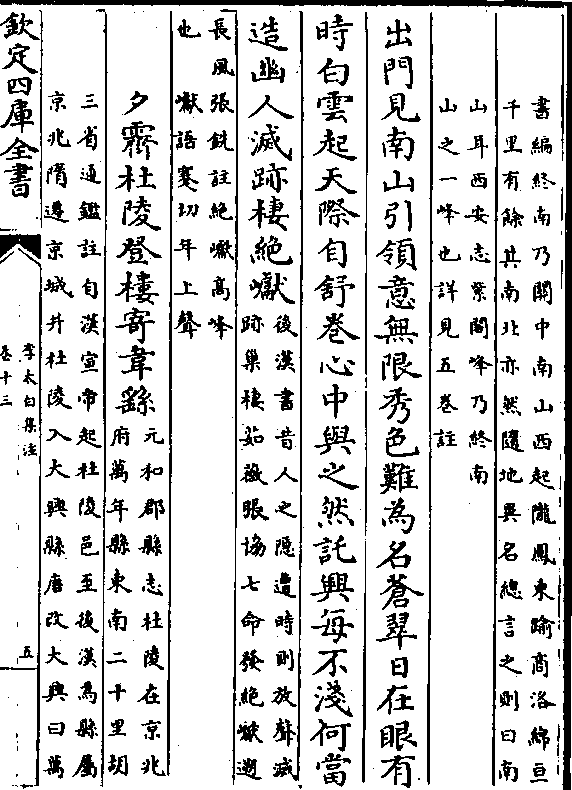 書編終南乃關中南山西起隴鳳東踰商洛綿亘
千里有餘其南北亦然隨地異名總言之則曰南
山耳西安志紫閣峰乃終南
山之一峰也詳見五卷註
出門見南山引領意無限秀色難為名蒼翠日在眼有
時白雲起天際自舒卷心中與之然託興每不淺何當
造幽人滅跡棲絶巘
後漢書昔人之隱遭時則放聲滅
跡巢棲茹薇張協七命發絶巘遡
長風張銑註絶巘高峰
也 巘語蹇切年上聲
夕霽杜陵登樓寄韋繇
元和郡縣志杜陵在京兆
府萬年縣東南二十里胡
三省通鑑註自漢宣帝起杜陵邑至後漢為縣屬
京兆隋遷京城并杜陵入大興縣唐改大興曰萬
欽定四庫全書
李太白集注
卷十三
五